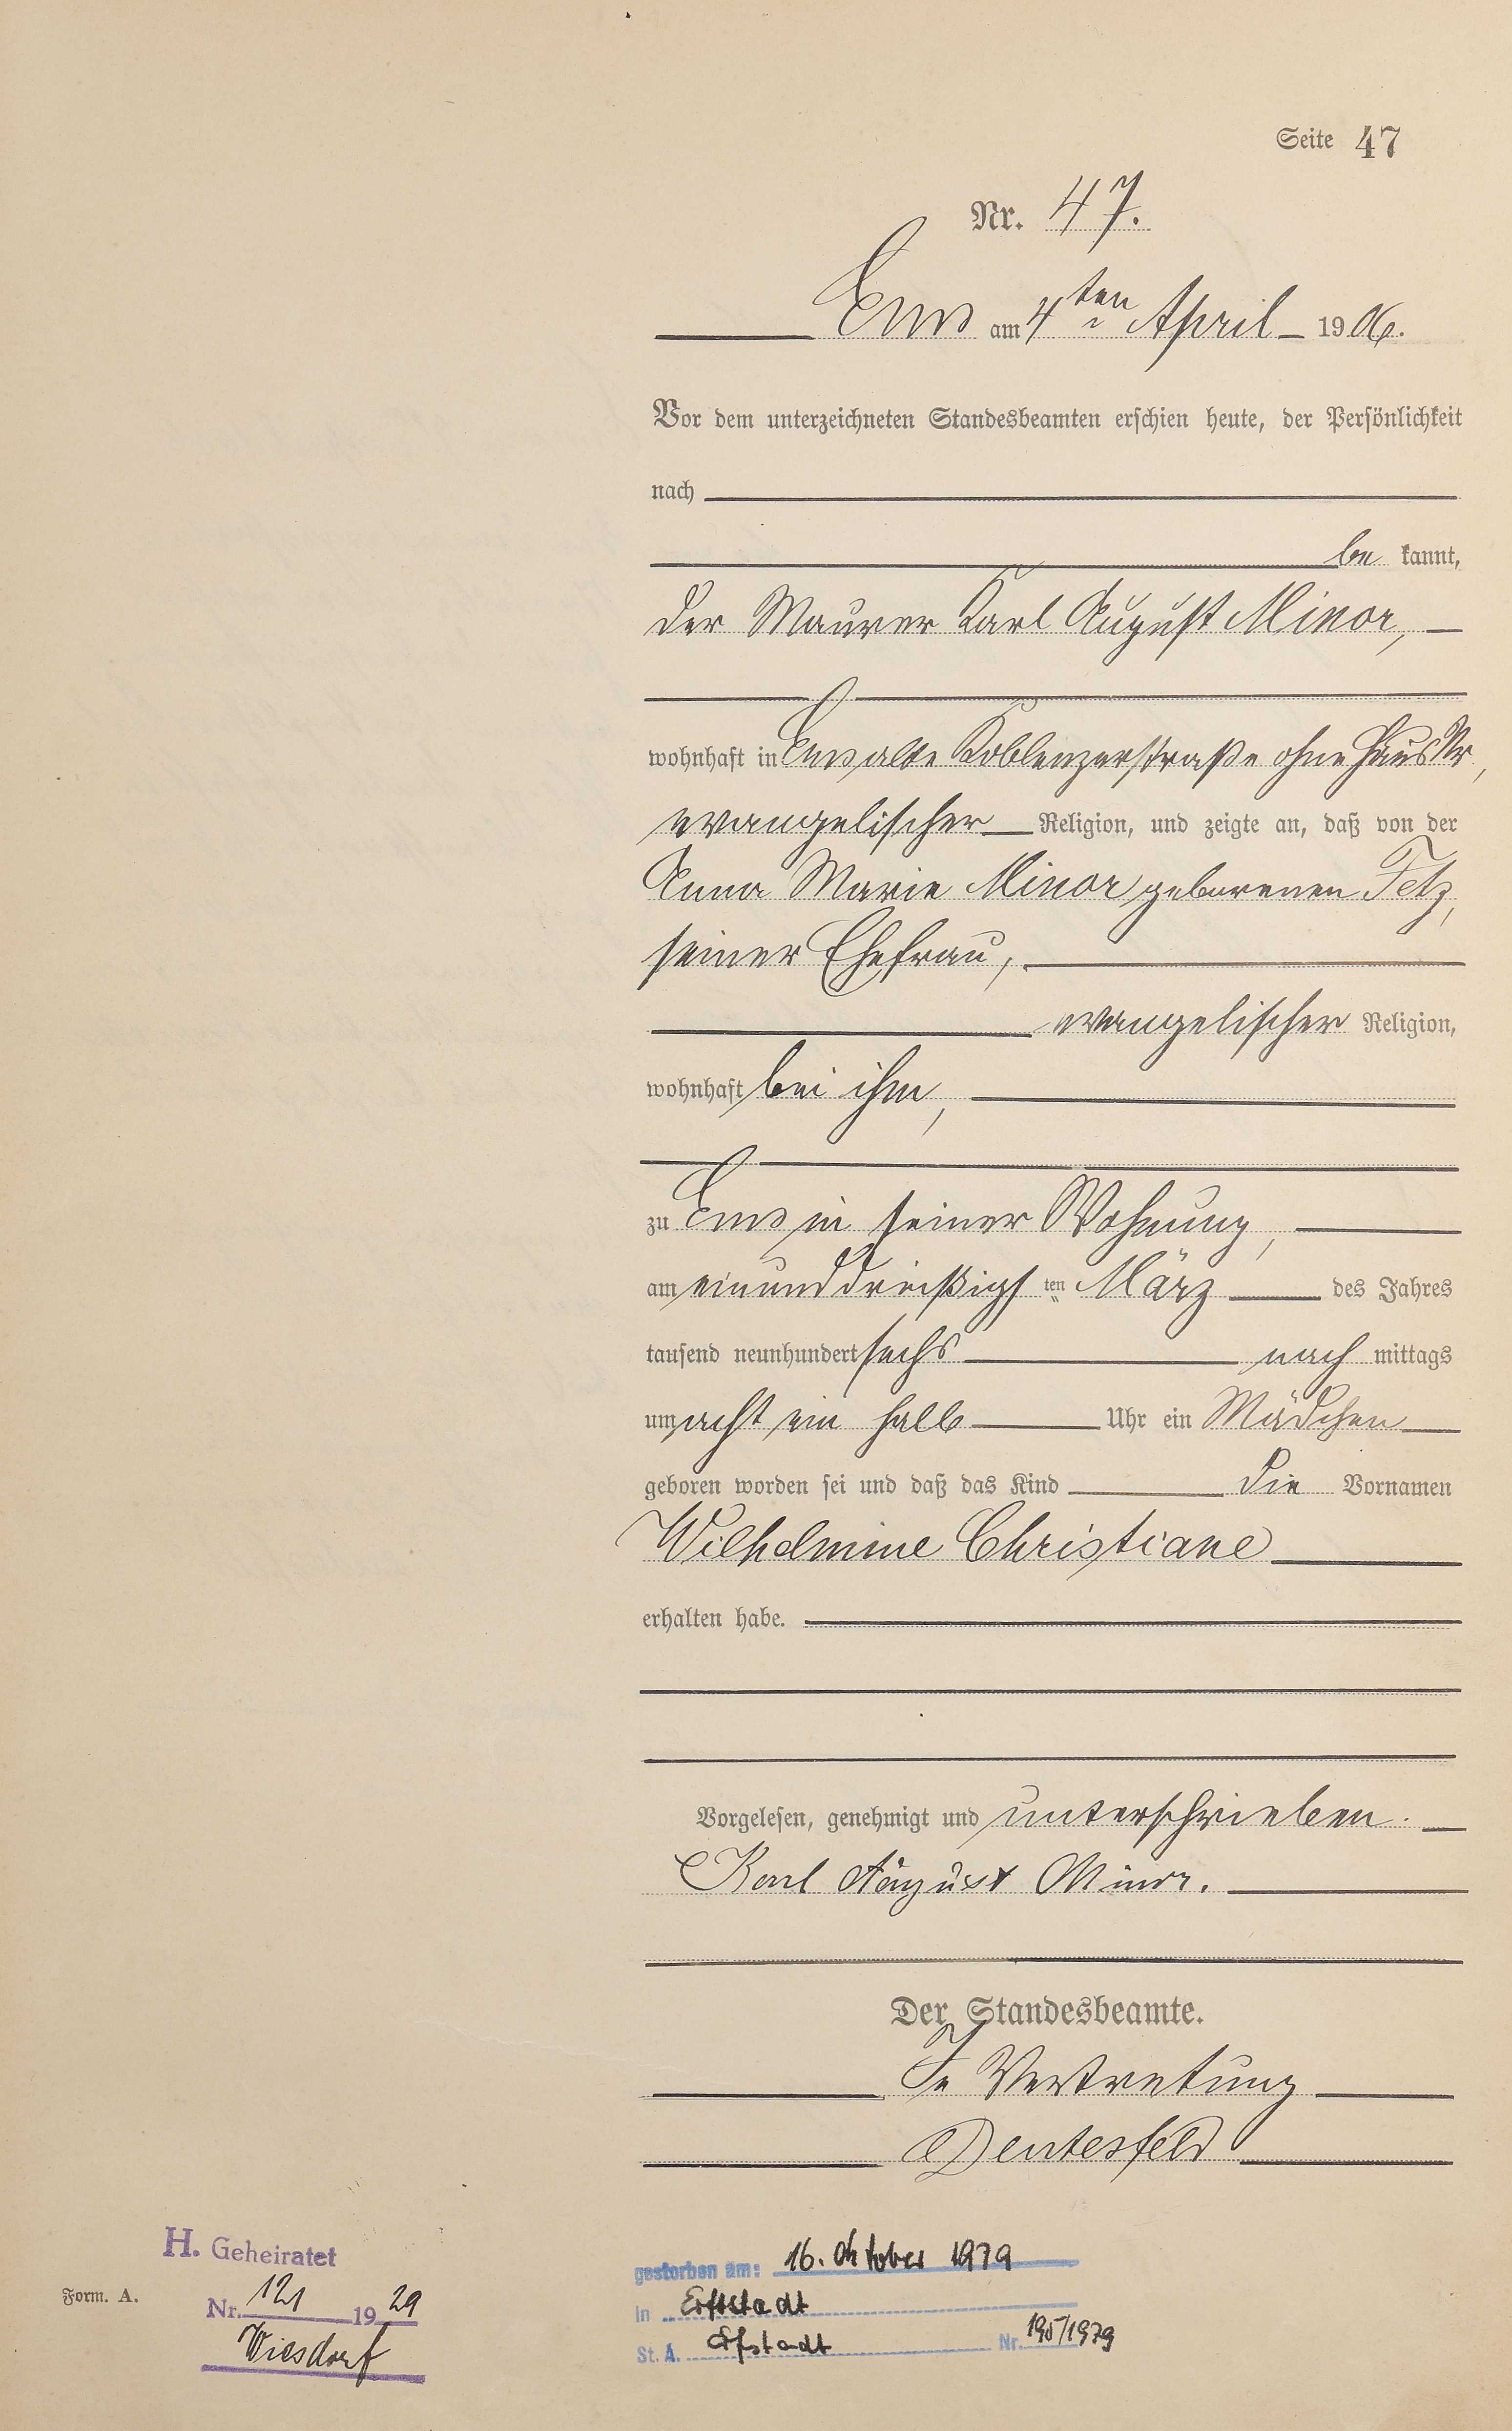 Seite 47
Nr. 47.
Ems am 4ten April 1906.
Vor dem unterzeichneten Standesbeamten erschien heute, der Persönlichkeit
nach
be kannt,
der Maurer Karl August Minor,
wohnhaft in Ems alte Koblenzerstraße ohne Haus Nr,
evangelischer Religion, und zeigte an, daß von der
Anna Marie Minor geborenen Fetz,
seiner Ehefrau,
evangelischer Religion,
wohnhaft bei ihm,
zu Ems in seiner Wohnung,
am einunddreißigsten März des Jahres
tausend neunhundert sechs nach mittags
um acht ein halb Uhr ein Mädchen
geboren worden sei und daß das Kind die Vornamen
Wilhelmine Christiane
erhalten habe.
Vorgelesen, genehmigt und unterschrieben.
Karl August Minor.
Der Standesbeamte.
In Vertretung
Dentesfeld
H. Geheiratet
Nr. 121 1929
Wiesdorf
Form. A.
gestorben am: 16. Oktober 1979
in Erftstadt
St. A. Erfstadt Nr. 195/1979